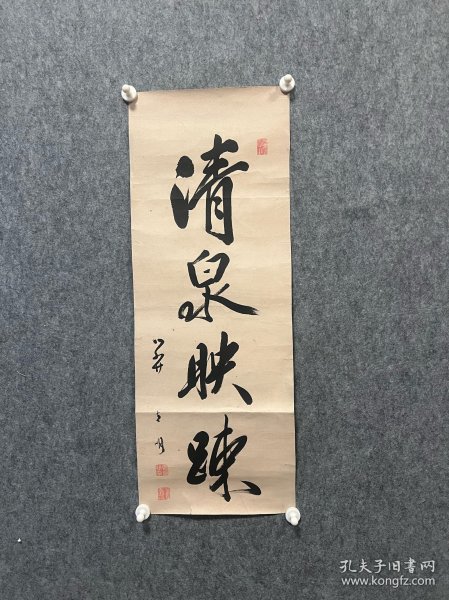 清泉映疎
孔夫子旧书网
www.kongfz.com